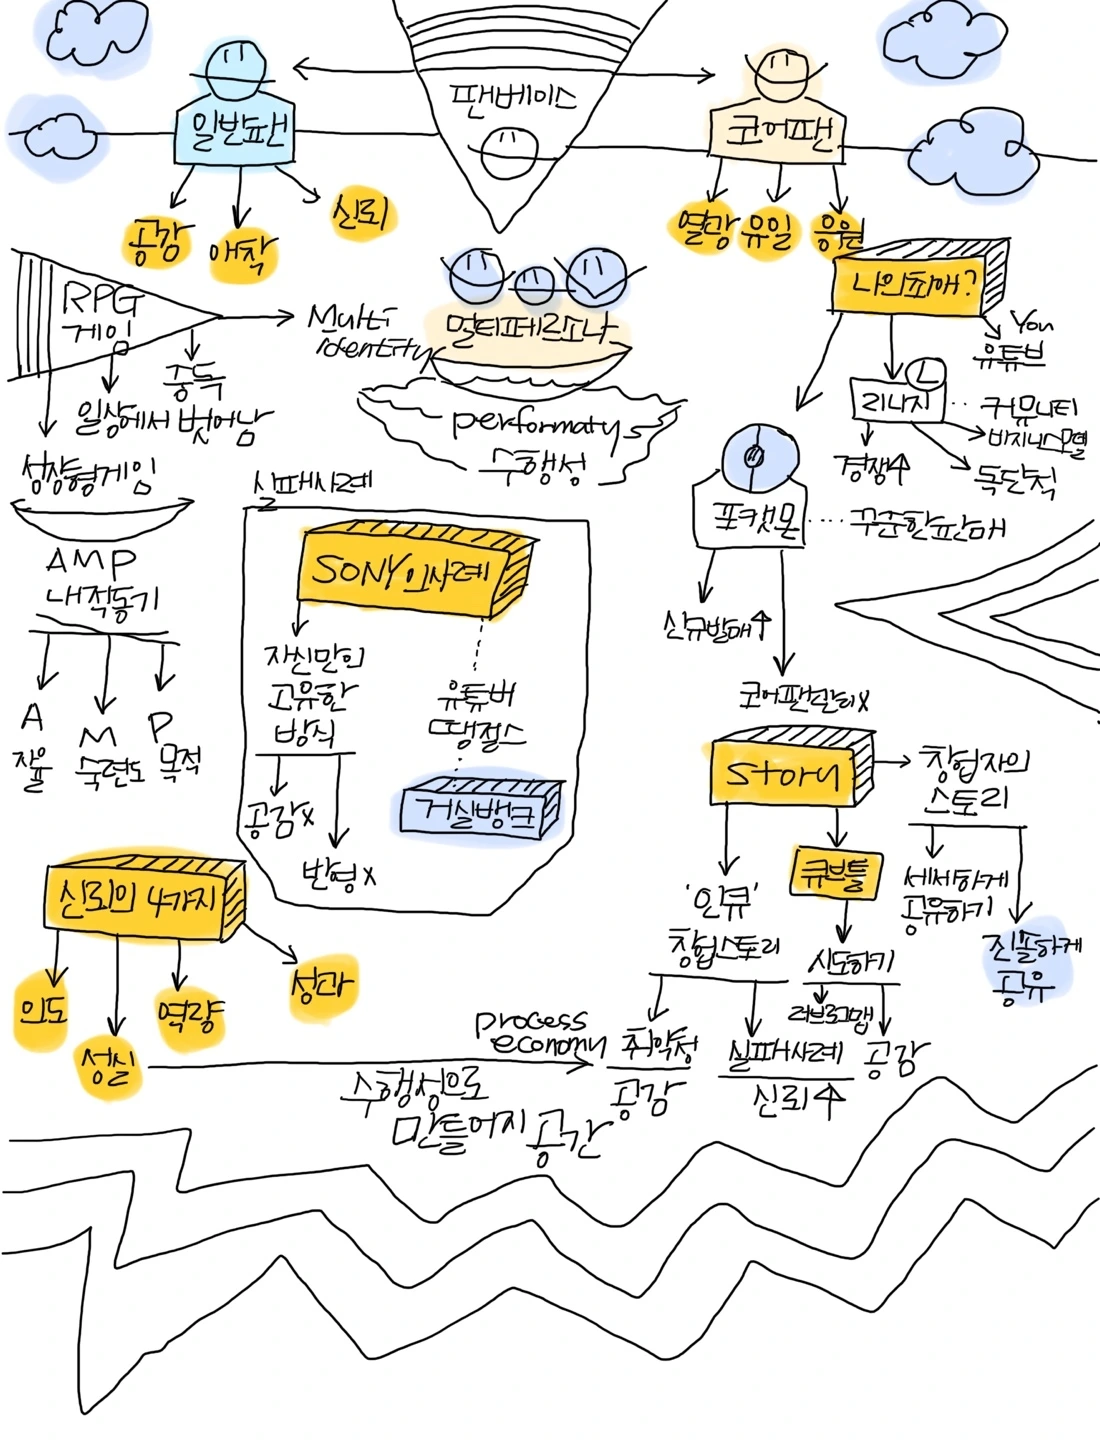 팬베이스
일반팬
코어팬
공감
애착
신뢰
열광
유일
응원
RPG
게임
중독
일상에서 벗어남
성장형게임
AMP
내적동기
A
자율
M
숙련도
P
목적
Multi
identity
멀티페르소나
performaty
수행성
나의판매?
You
유튜브
L
리니지
커뮤니티
비지니스모델
경쟁↑
독단적
포켓몬
꾸준한판매
신규발매↑
코어팬만리x
실패사례
SONY의사례
자신만의
고유한
방식
공감x
반형x
유튜버
땡절스
거실뱅크
Story
창업자의
스토리
세세하게
공유하기
진솔하게
공유
'인큐'
창업스토리
취약성
공감
실패사례
신뢰↑
큐브틀
시도하기
러브로그맵
공감
신뢰의 4가지
의도
성실
역량
성과
process
economy
수행성으로
만들어지 공간